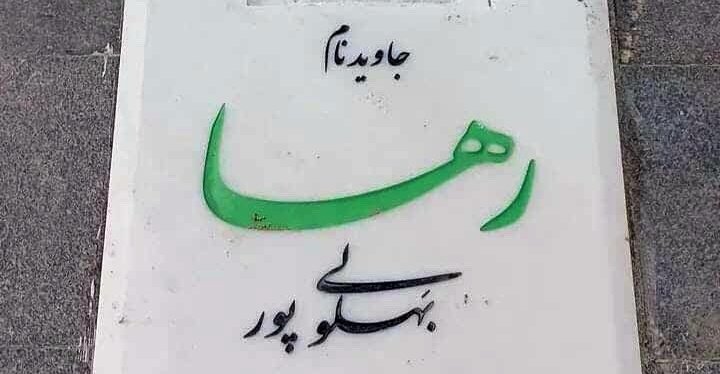 جاویدنام
رها
بهلولی پور